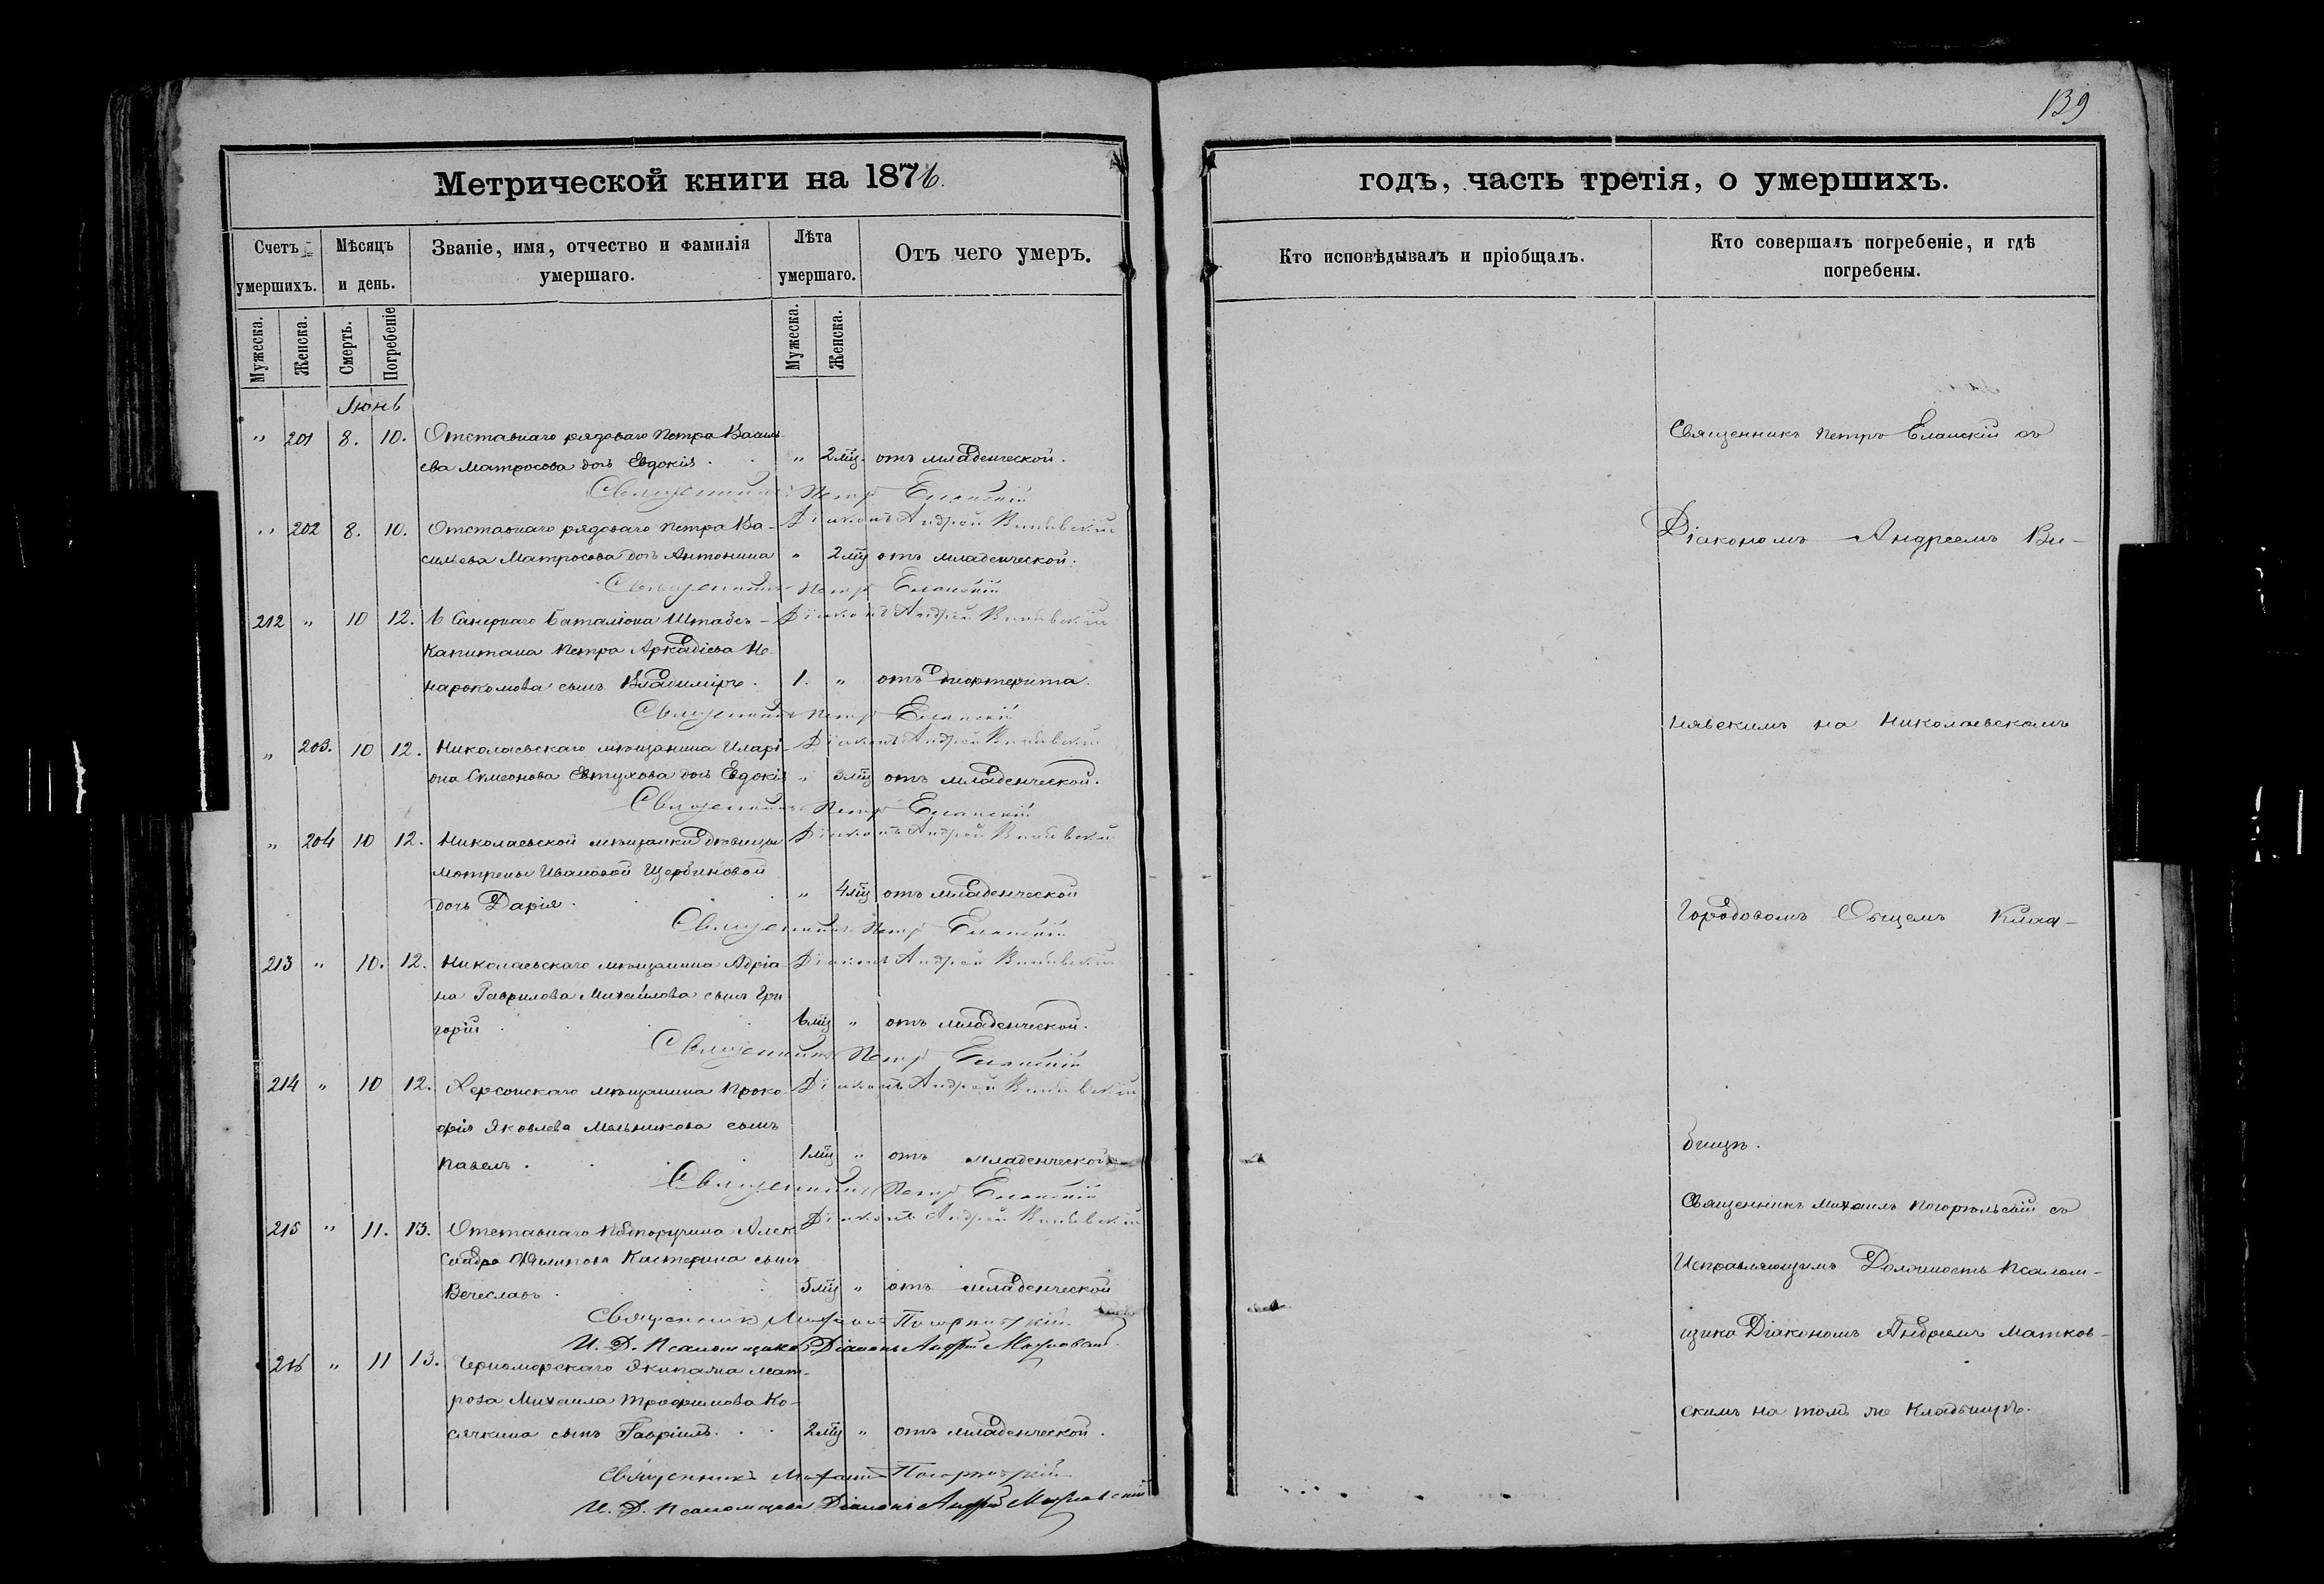 139
Метрической книги на 1876.
годъ, часть третія, о умершихъ.
Счетъ умершихъ.
Мѣсяцъ и день.
Званіе, имя, отчество и фамилія умершаго.
Лѣта умершаго.
Отъ чего умеръ.
Кто исповѣдывалъ и пріобщалъ.
Кто совершалъ погребеніе, и гдѣ погребены.
Мужеска. Женска. Смерть. Погребеніе Мужеска. Женска.
Июнь
" 201 8. 10. Отставнаго рядоваго Петра Василь-
ева Матросова дочь Евдокія . . " 2 мц. отъ младенческой.
Священникъ Петръ Еланскій
" 202 8. 10. Отставнаго рядоваго Петра Ва- Діаконъ Андрей
сильева Матросова дочь Антонина " 2 мц отъ младенческой.
Священникъ Петръ Еланскій
212 " 10 12. 6 Сапернаго баталіона Штабсъ- Діаконъ Андрей
Капитана Петра Аркадіева Не-
нарокомова сынъ Владиміръ . 1. " отъ дифтерита.
Священникъ Петръ Еланскій
" 203. 10 12. Николаевскаго мѣщанина Иларі- Діаконъ Андрей
она Симеонова Евтухова дочь Евдокія " 3 мц отъ младенческой.
Священникъ Петръ Еланскій
" 204 10 12. Николаевской мѣщанки дѣвицы Діаконъ Андрей
Мотрены Ивановой Щербиновой
дочь Дарія . . . " 4 мц отъ младенческой
Священникъ Петръ Еланскій
213 " 10. 12. Николаевскаго мѣщанина Адріа- Діаконъ Андрей
на Гаврилова Михайлова сынъ Гри
горій . . . 6 мц " отъ младенческой.
Священникъ Петръ Еланскій
214 " 10 12. Херсонскаго мѣщанина Проко- Діаконъ Андрей
фія Яковлева Мельникова сынъ
Павелъ . . . 1 мц " отъ младенческой
Священникъ Петръ Еланскій
215 " 11. 13. Отставнаго Подпоручика Алек Діаконъ Андрей
сандра Филипова Кастерина сынъ
Вечеславъ . . . 5 мц " отъ младенческой
Священникъ Михаилъ Погорѣльскій
И. Д. Псаломщика Діаконъ Андрей Матковскій.
216 " 11 13. Черноморскаго Экипажа мат-
роза Михаила Трофимова Ко-
сячкина сынъ Гавріилъ . . 2 мц " отъ младенческой.
Священникъ Михаилъ Погорѣльскій
И. Д. Псаломщика Діаконъ Андрей Матковскій
Священникъ Петръ Еланскій съ
Діакономъ Андреемъ Ви-
нявскимъ на Николаевскомъ
Городовомъ Общемъ Клад-
бищѣ.
Священникъ Михаилъ Погорѣльскій съ
Исправляющимъ Должность Псалом-
щика Діакономъ Андреемъ Матков-
скимъ на томъ же Кладбищѣ.